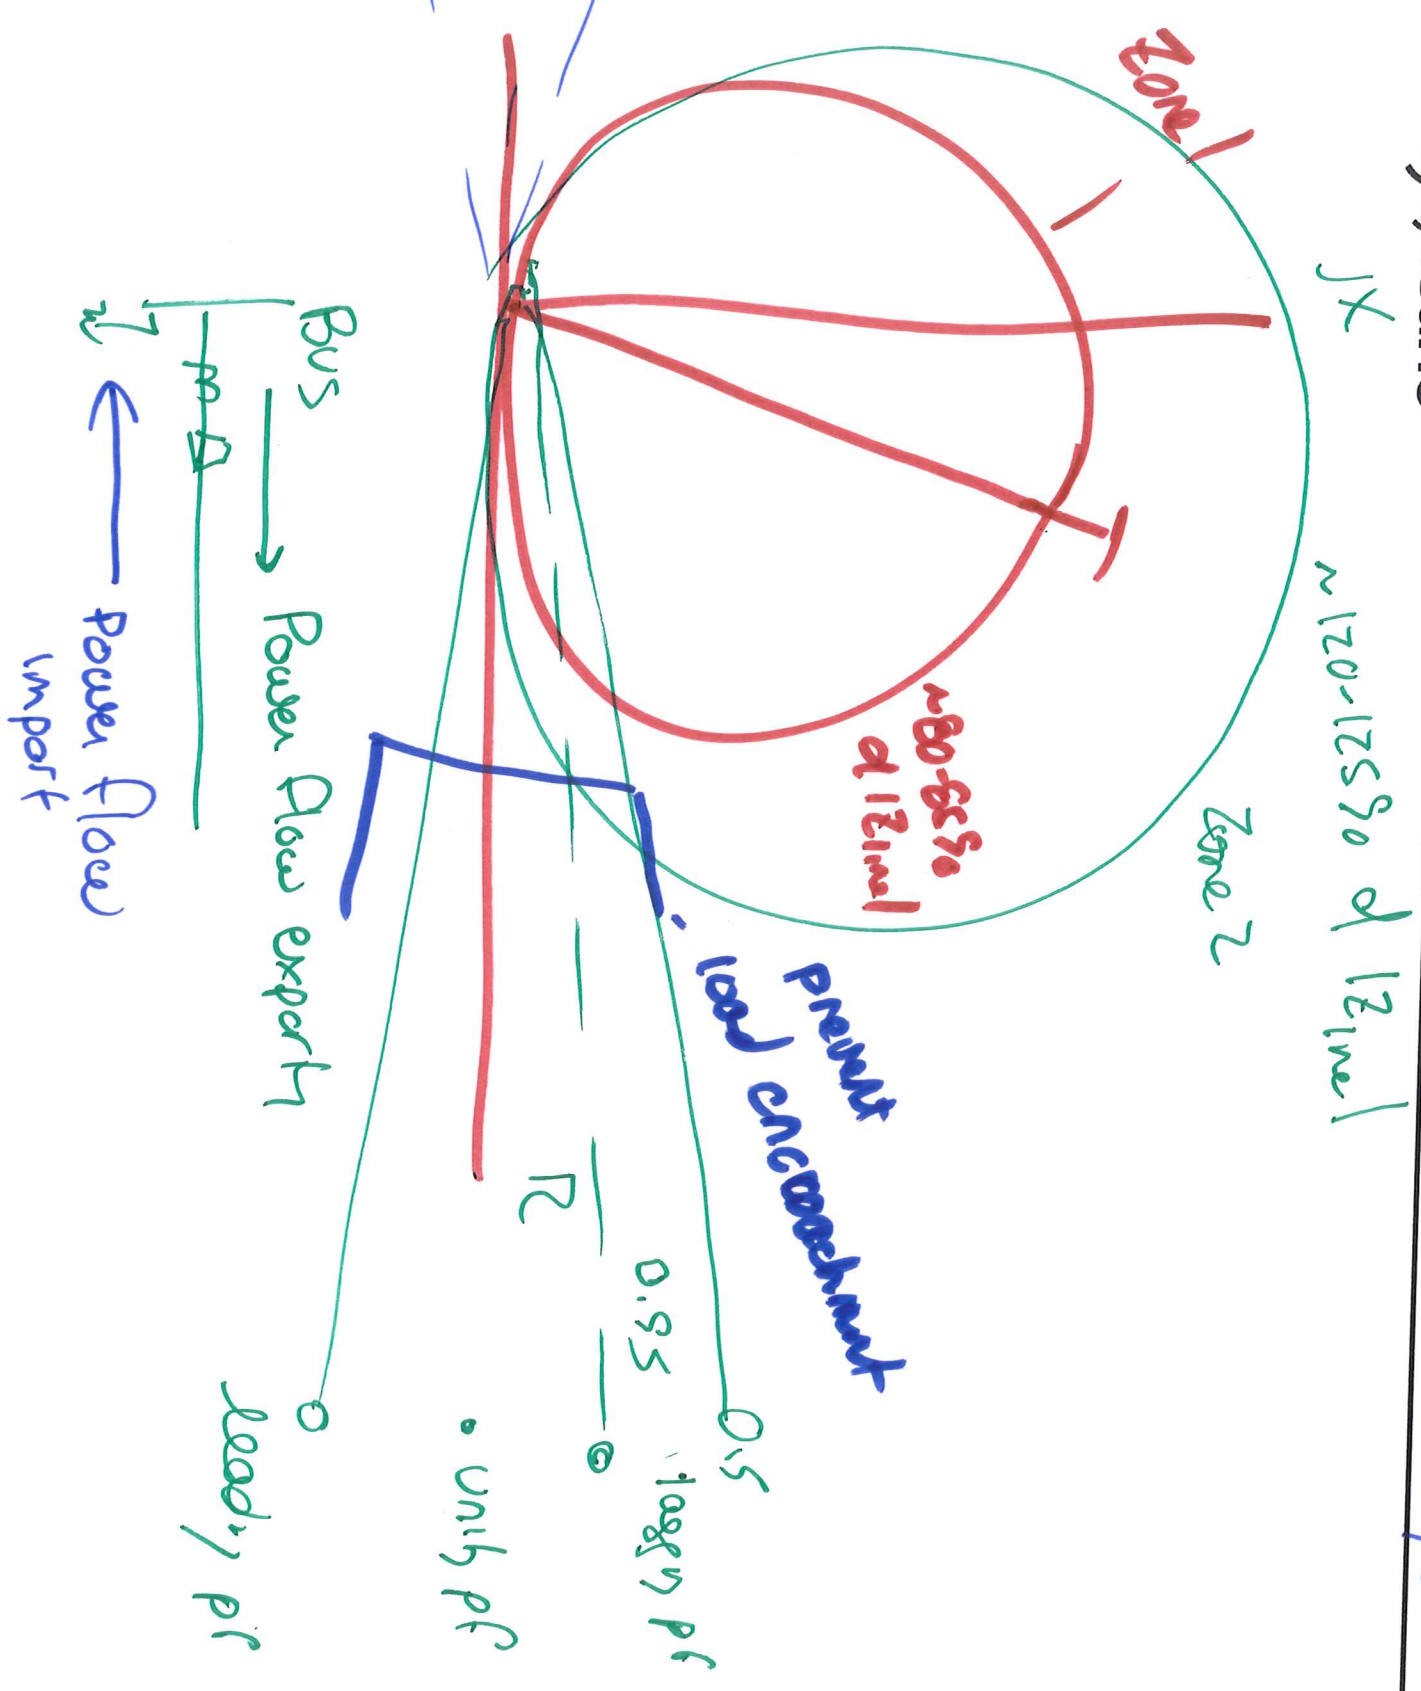 Zone 1
JX
~120-125% of |Z line|
Zone 2
~80-85%
of |Zline|
prevent
load encroachment
R
0.95
0.9
lagging pf
unity pf
leady pf
Bus
Power flow export
Power flow
import